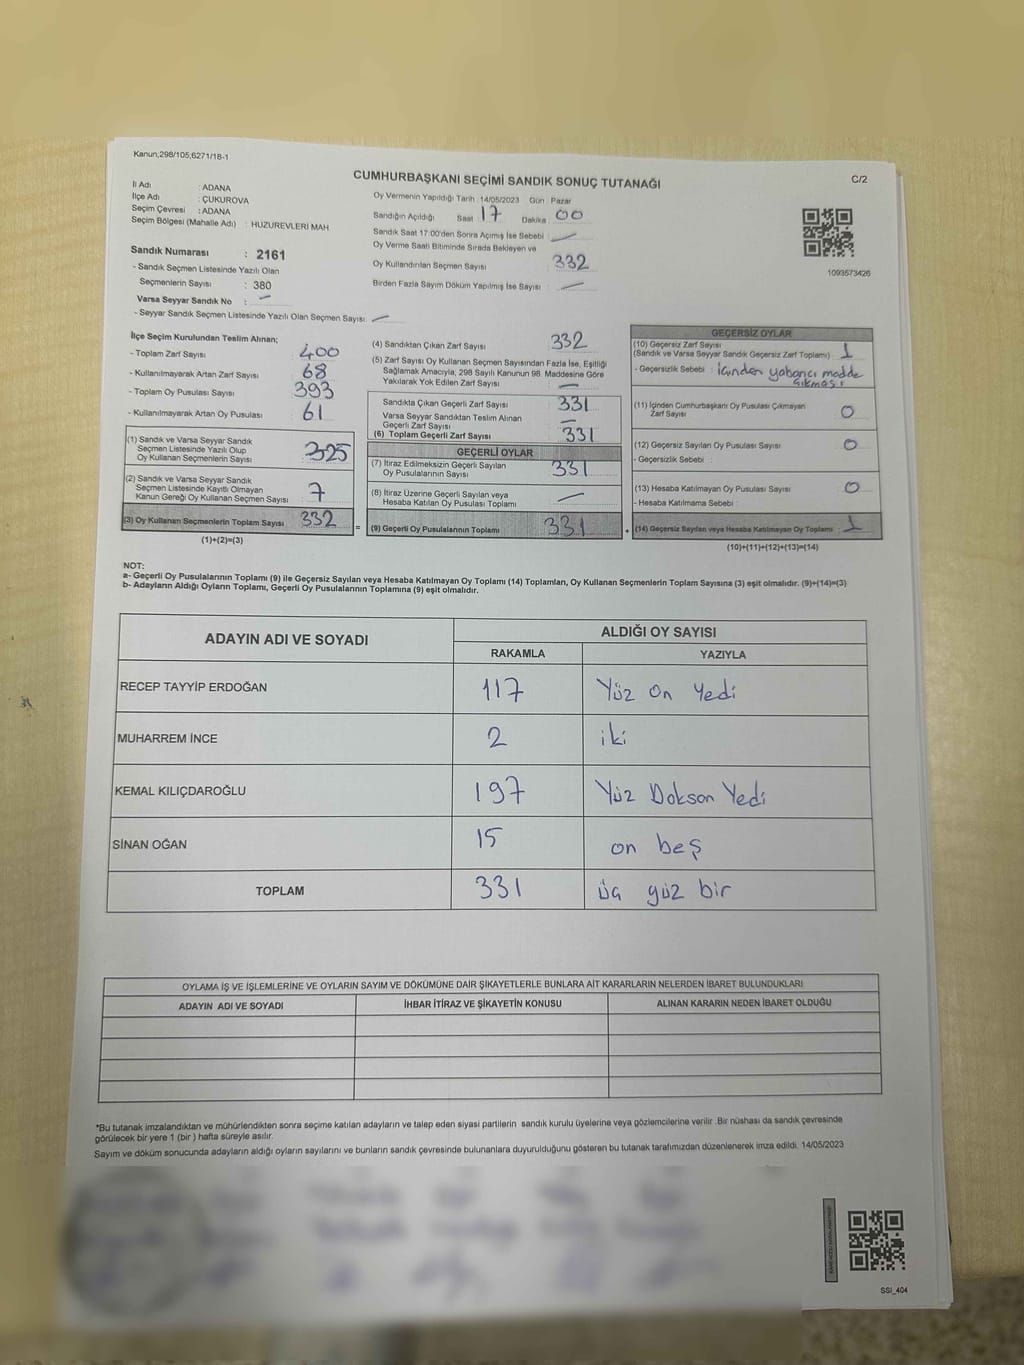 Kanun;298/105,6271/18-1
CUMHURBAŞKANI SEÇİMİ SANDIK SONUÇ TUTANAĞI
C/2
İl Adı : ADANA
İlçe Adı : ÇUKUROVA
Seçim Çevresi : ADANA
Seçim Bölgesi (Mahalle Adı) : HUZUREVLERİ MAH.
Sandık Numarası : 2161
- Sandık Seçmen Listesinde Yazılı Olan
Seçmenlerin Sayısı : 380
Varsa Seyyar Sandık No : —
- Seyyar Sandık Seçmen Listesinde Yazılı Olan Seçmen Sayısı: —
Oy Vermenin Yapıldığı Tarih :14/05/2023 Gün : Pazar
Sandığın Açıldığı Saat 17 Dakika 00
Sandık Saat 17:00'den Sonra Açımış İse Sebebi : —
Oy Verme Saati Bitiminde Sırada Bekleyen ve
Oy Kullandırılan Seçmen Sayısı : 332
Birden Fazla Sayım Döküm Yapılmış İse Sayısı : —
1093573426
İlçe Seçim Kurulundan Teslim Alınan;
- Toplam Zarf Sayısı : 400
- Kullanılmayarak Artan Zarf Sayısı : 68
- Toplam Oy Pusulası Sayısı : 393
- Kullanılmayarak Artan Oy Pusulası : 61
(1) Sandık ve Varsa Seyyar Sandık
Seçmen Listesinde Yazılı Olup
Oy Kullanan Seçmenlerin Sayısı : 325
(2) Sandık ve Varsa Seyyar Sandık
Seçmen Listesinde Kayıtlı Olmayan
Kanun Gereği Oy Kullanan Seçmen Sayısı : 7
(3) Oy Kullanan Seçmenlerin Toplam Sayısı : 332
(1)+(2)=(3)
(4) Sandıktan Çıkan Zarf Sayısı : 332
(5) Zarf Sayısı Oy Kullanan Seçmen Sayısından Fazla İse, Eşitliği
Sağlamak Amacıyla, 298 Sayılı Kanunun 98. Maddesine Göre
Yakılarak Yok Edilen Zarf Sayısı : —
Sandıkta Çıkan Geçerli Zarf Sayısı : 331
Varsa Seyyar Sandıktan Teslim Alınan
Geçerli Zarf Sayısı : —
(6) Toplam Geçerli Zarf Sayısı : 331
GEÇERLİ OYLAR
(7) İtiraz Edilmeksizin Geçerli Sayılan
Oy Pusulalarının Sayısı : 331
(8) İtiraz Üzerine Geçerli Sayılan veya
Hesaba Katılan Oy Pusulası Toplamı : —
= (9) Geçerli Oy Pusulalarının Toplamı : 331
GEÇERSİZ OYLAR
(10) Geçersiz Zarf Sayısı
(Sandık ve Varsa Seyyar Sandık Geçersiz Zarf Toplamı) : 1
- Geçersizlik Sebebi : İçinden yabancı madde
çıkması
(11) İçinden Cumhurbaşkanı Oy Pusulası Çıkmayan
Zarf Sayısı : 0
(12) Geçersiz Sayılan Oy Pusulası Sayısı : 0
- Geçersizlik Sebebi :
(13) Hesaba Katılmayan Oy Pusulası Sayısı : 0
- Hesaba Katılmama Sebebi :
+ (14) Geçersiz Sayılan veya Hesaba Katılmayan Oy Toplamı : 1
(10)+(11)+(12)+(13)=(14)
NOT:
a- Geçerli Oy Pusulalarının Toplamı (9) ile Geçersiz Sayılan veya Hesaba Katılmayan Oy Toplamı (14) Toplamları, Oy Kullanan Seçmenlerin Toplam Sayısına (3) eşit olmalıdır. (9)+(14)=(3)
b- Adayların Aldığı Oyların Toplamı, Geçerli Oy Pusulalarının Toplamına (9) eşit olmalıdır.
ADAYIN ADI VE SOYADI
ALDIĞI OY SAYISI
RAKAMLA YAZIYLA
RECEP TAYYİP ERDOĞAN 117 Yüz On Yedi
MUHARREM İNCE 2 iki
KEMAL KILIÇDAROĞLU 197 Yüz Dokson Yedi
SİNAN OĞAN 15 on beş
TOPLAM 331 üç yüz bir
OYLAMA İŞ VE İŞLEMLERİNE VE OYLARIN SAYIM VE DÖKÜMÜNE DAİR ŞİKAYETLERLE BUNLARA AİT KARARLARIN NELERDEN İBARET BULUNDUKLARI
ADAYIN ADI VE SOYADI İHBAR İTİRAZ VE ŞİKAYETİN KONUSU ALINAN KARARIN NEDEN İBARET OLDUĞU
*Bu tutanak imzalandıktan ve mühürlendikten sonra seçime katılan adayların ve talep eden siyasi partilerin sandık kurulu üyelerine veya gözlemcilerine verilir .Bir nüshası da sandık çevresinde
görülecek bir yere 1 (bir ) hafta süreyle asılır.
Sayım ve döküm sonucunda adayların aldığı oyların sayılarını ve bunların sandık çevresinde bulunanlara duyurulduğunu gösteren bu tutanak tarafımızdan düzenlenerek imza edildi. 14/05/2023
SSI_404